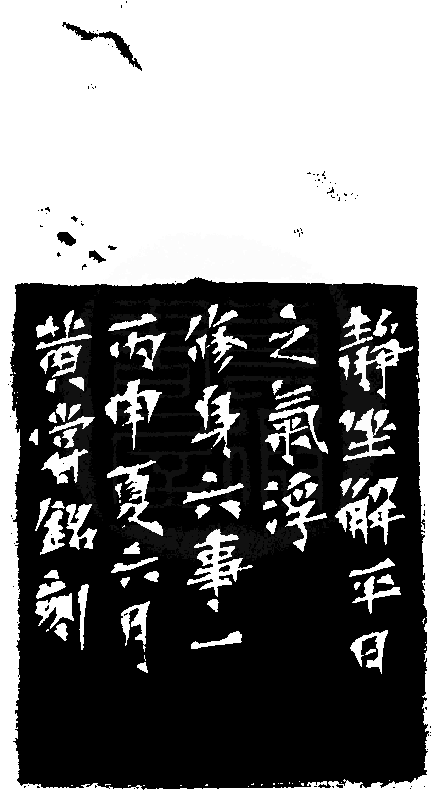 靜坐解平日
之氣浮
修身六事一
丙申夏六月
黄嘗銘刻